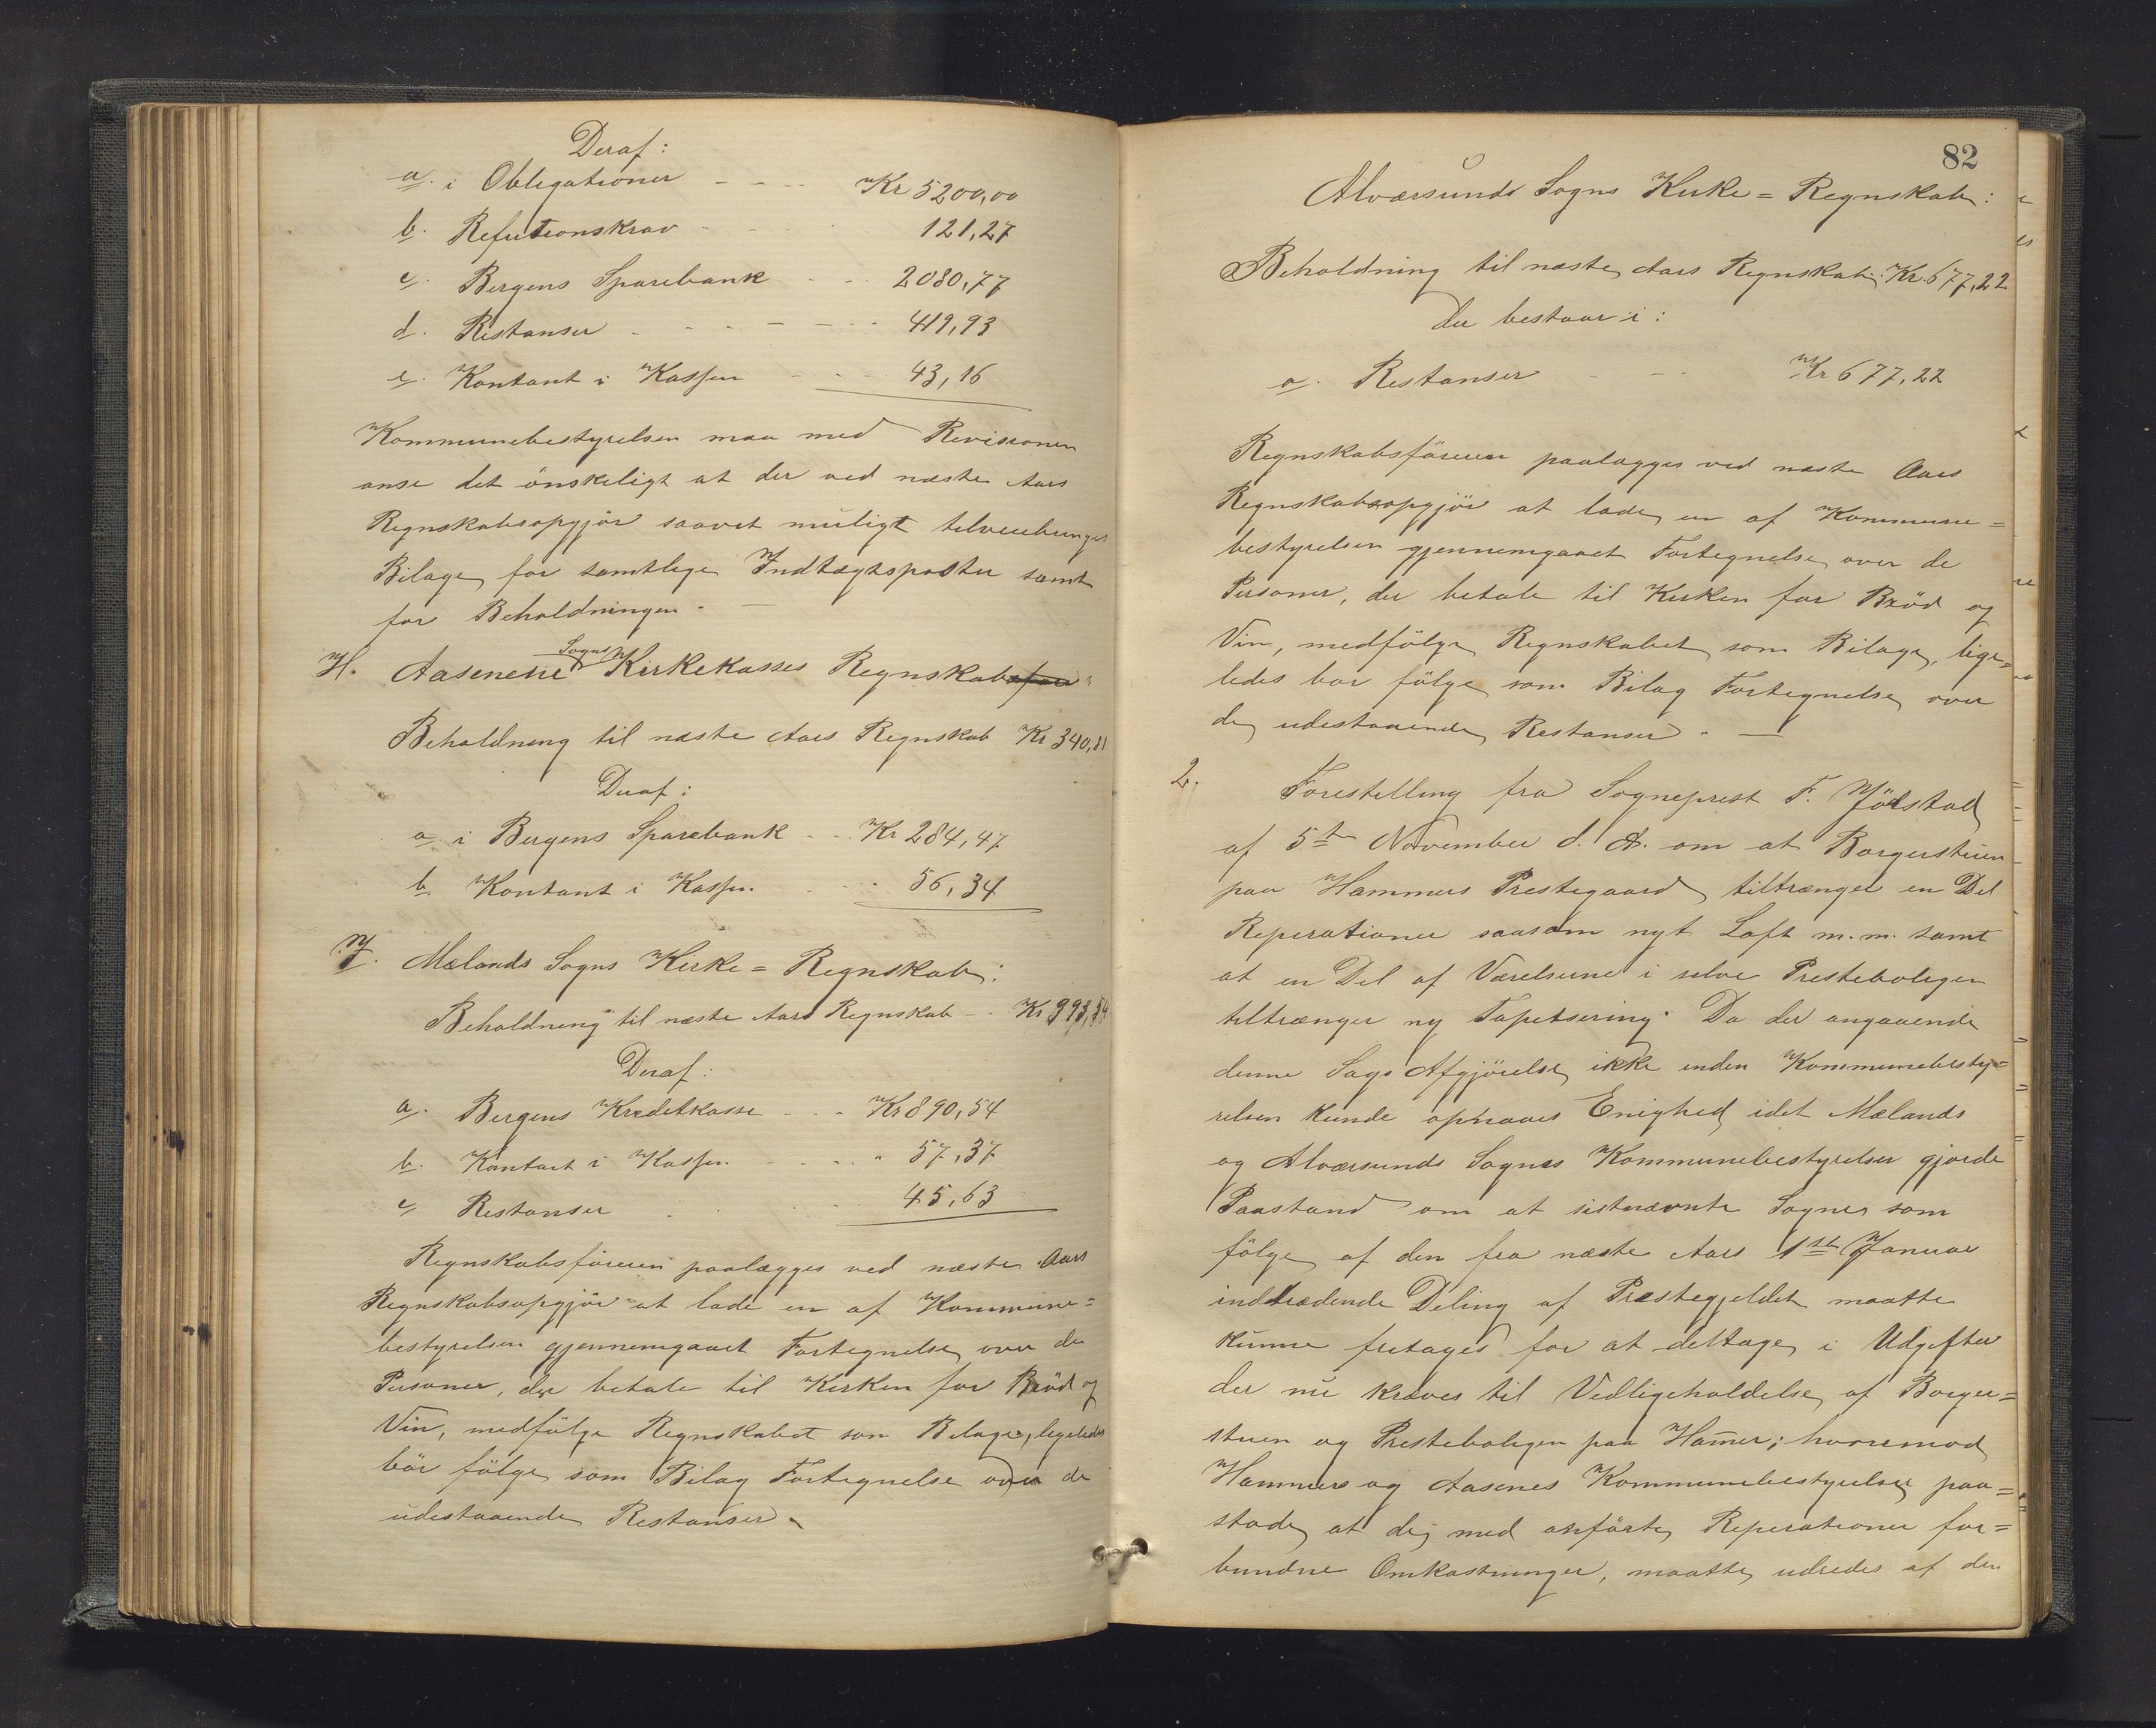 Deraf:
a. i Obligationer - - - Kr 5200,00
b. Refutionskrav - - 121,27
c. Bergens Sparebank - - 2080,77
d. Restanser - - - - - 419,93
e. Kontant i Kassen - - - 43,16
Kommunebestyrelsen maa med Revisionen
anse det ønskeligt at der ved næste Aars
Regnskabsopgjør saavet muligt tilveiebringes
Bilage for samtlige Indtægtsposter samt
for Beholdningen. —
H. Aasenene Sogns Kirkekasses Regnskab:
Beholdning til næste Aars Regnskab Kr 340,81
Deraf:
a i Bergens Sparebank - - Kr 284,47
b Kontant i Kassen. - - - 56,34
J. Mælands Sogns Kirke = Regnskab:
Beholdning til næste Aars Regnskab - - Kr 993,54
Deraf:
a. Bergens Kreditkasse - - - Kr 890,54
b. Kontant i Kassen - - - - " 57,37
c Restanser - - - 45,63
Regnskabsføreren paalægges ved næste Aars
Regnskabsopgjør at lade en af Kommune=
bestyrelsen gjennemgaaet Fortegnelse over de
Personer, der betale til Kirken for Brød og
Vin, medfølge Regnskabet som Bilage, ligeledes
bör fölge som Bilag Fortegnelse over de
udestaaende Restanser.
82
Alværsunds Sogns Kirke = Regnskab:
Beholdning til næste Aars Regnskab: Kr. 677,22
der bestaar i:
a. Restanser - - - Kr 677,22
Regnskabsföreren paalægges ved næste Aars
Regnskabsopgjör at lade en af Kommune=
bestyrelsen gjennemgaaet Fortegnelse over de
Personer, der betale til Kirken for Bröd og
Vin, medfölge Regnskabet som Bilage, lige=
ledes bør fölge som Bilag Fortegnelse over
de udestaaende Restanser. —
2. Forestilling fra Sogneprest F. Jölstad
af 5te November d. A. om at Borgerstuen
paa Hammers Prestegaard tiltrænger en Del
Reperationer saasom nyt Loft m. m. samt
at en Del af Værelserne i selve Presteboligen
tiltrænger ny Tapetsering. Da der angaaende
denne Sags Afgjörelse ikke inden Kommunebesty=
relsen kunde opnaaes Enighed, idet Mælands
og Alværsunds Sognes Kommunebestyrelser gjorde
Paastand om at sistnævnte Sogner som
fölge af den fra næste Aars 1ste Januar
indtrædende Deling af Præstegjeldet maatte
kunne fritages for at deltage i Udgifter
der nu kræves til Vedligeholdelse af Borger=
stuen og Presteboligen paa Ham̄er; hvorimod
Hammers og Aasenes Kommunebestyrelser paa=
stode at de med anförte Reperationer for=
bundne Omkostninger, maatte udredes af den